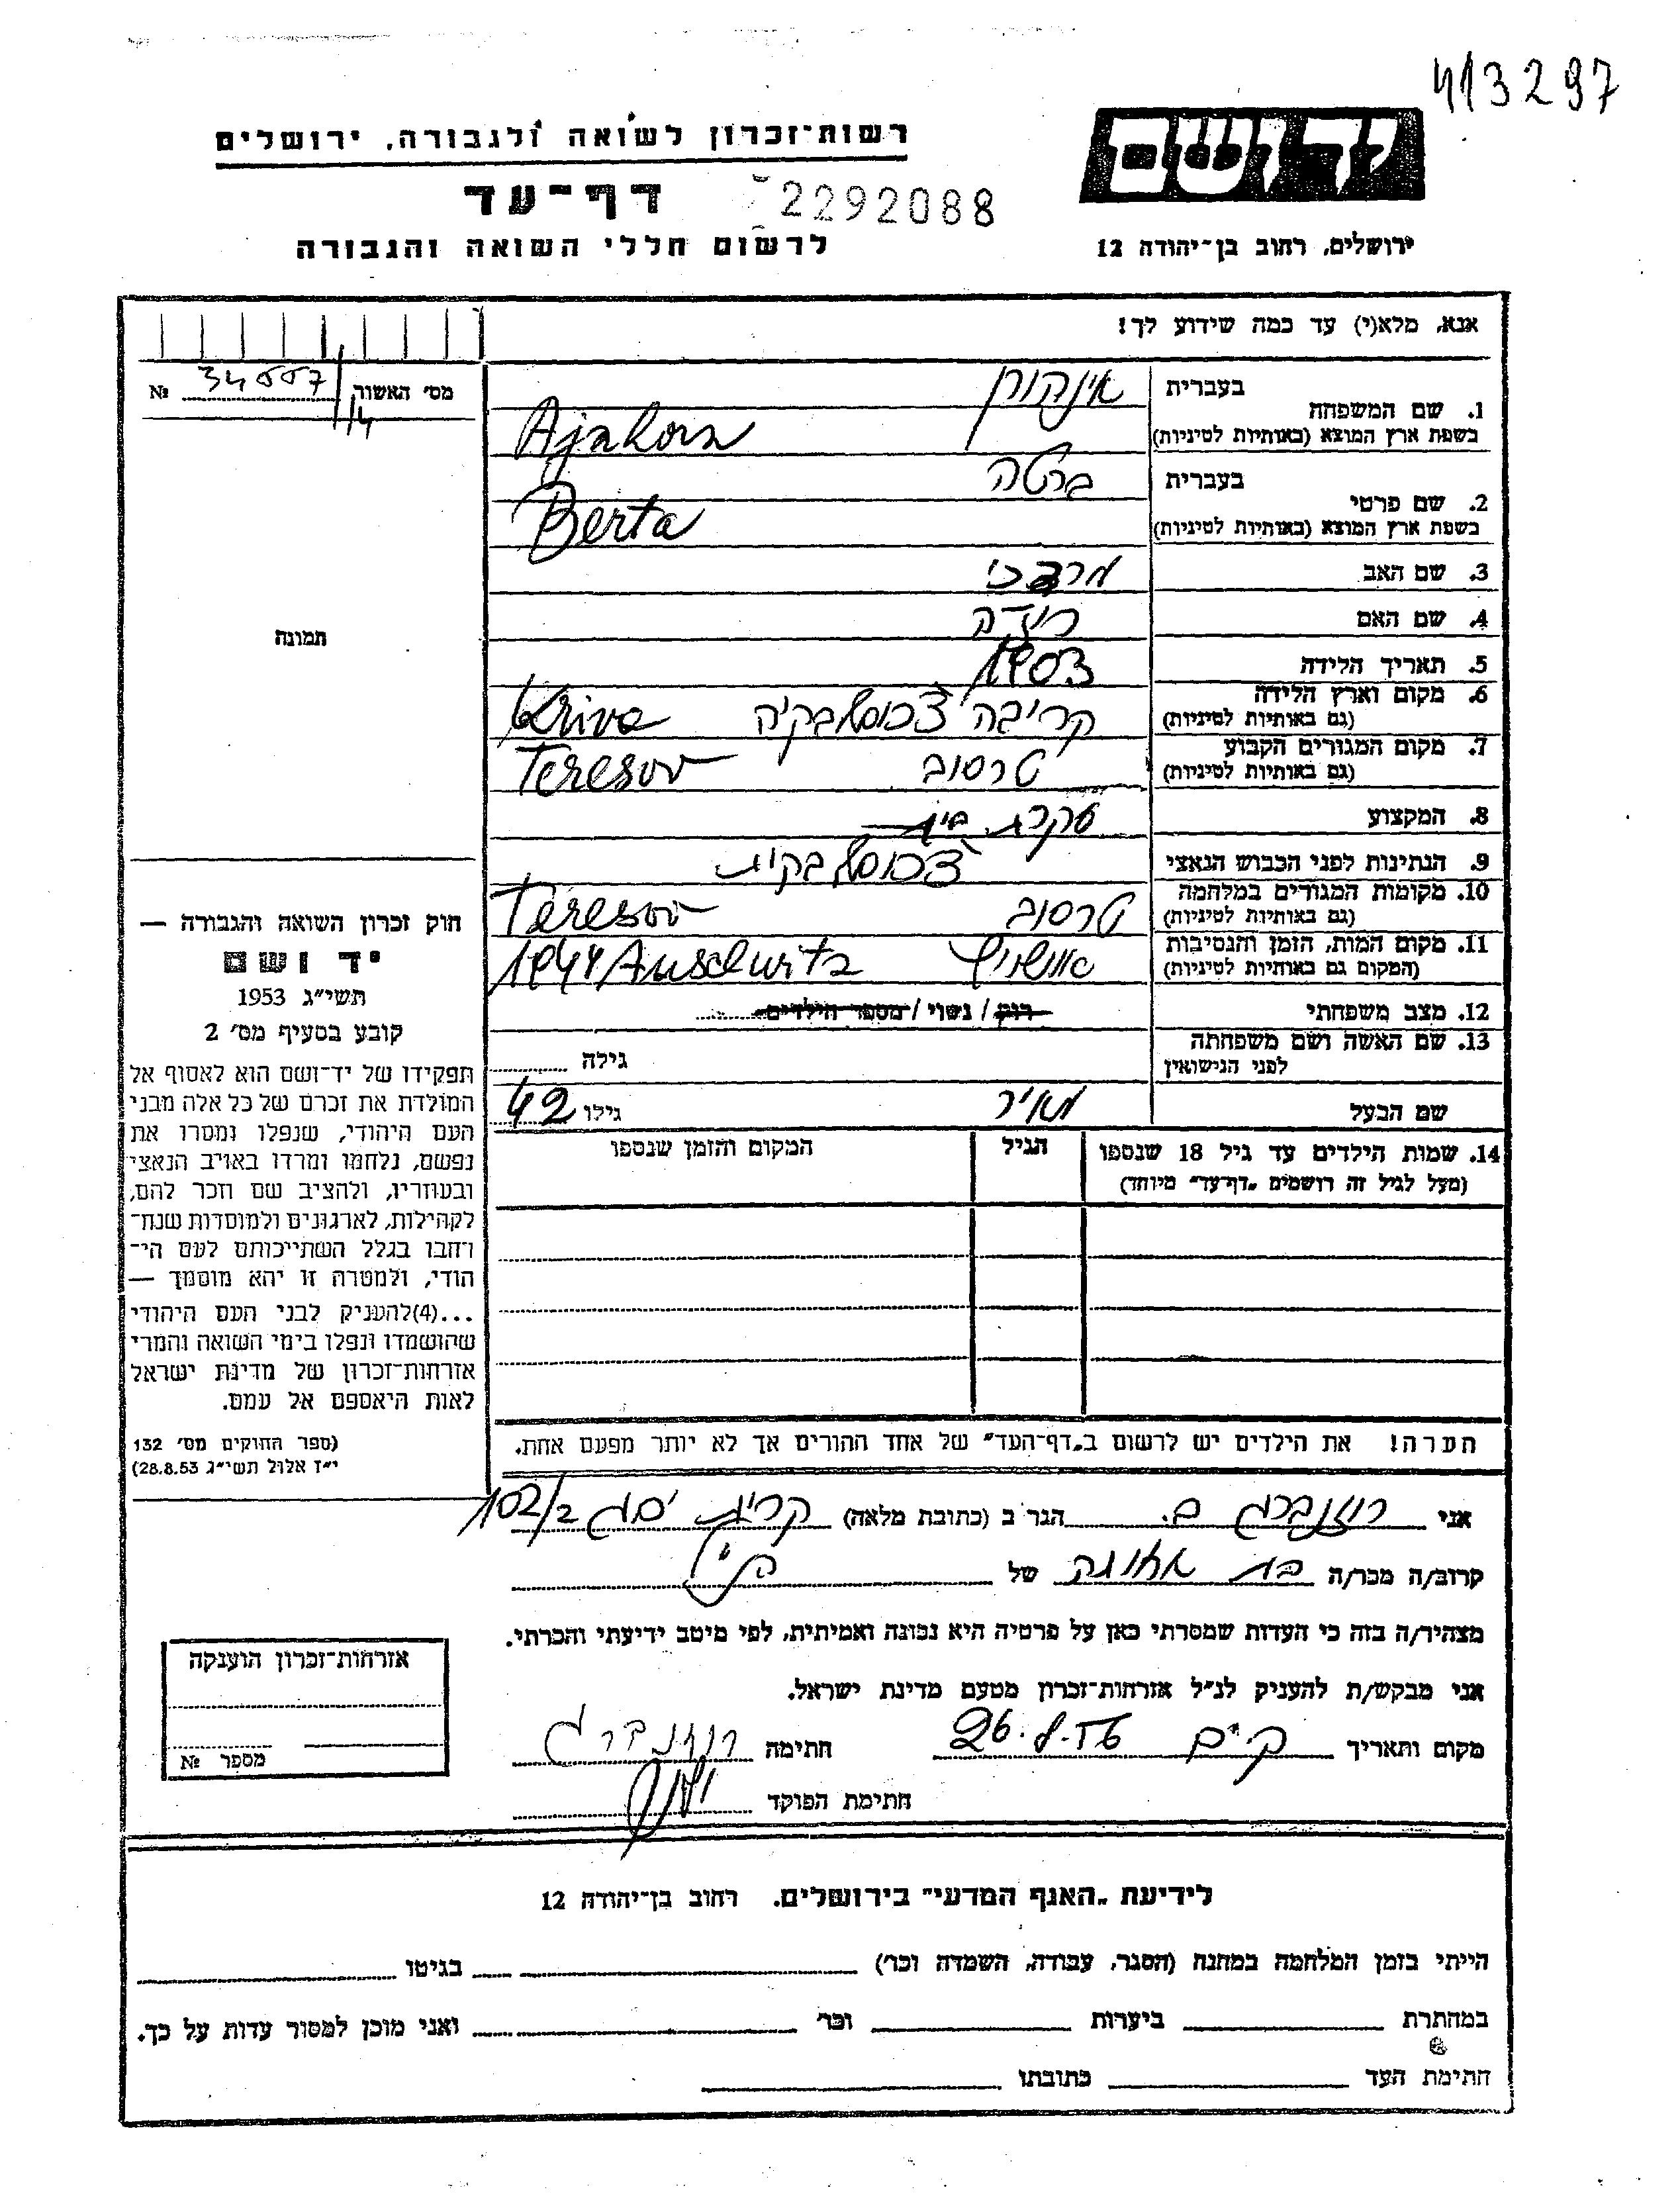 413297
יד ושם
רשות־זכרון לשואה ולגבורה, ירושלים
דף־עד
2292088
לרשום חללי השואה והגבורה
ירושלים, רחוב בן־יהודה 12
אנא, מלא(י) עד כמה שידוע לך!
מס׳ האשור 34557 №
14
1. שם המשפחה
בעברית אינקורן
בשפת ארץ המוצא (באותיות לטיניות) Ajnkorn
2. שם פרטי
בעברית ברטה
בשפת ארץ המוצא (באותיות לטיניות) Berta
3. שם האב מרדכי
4. שם האם רוזה
5. תאריך הלידה 1903
6. מקום וארץ הלידה (גם באותיות לטיניות) קריבה צ׳כוסלובקיה Kriva
7. מקום המגורים הקבוע (גם באותיות לטיניות) טרסוב Teresov
8. המקצוע עקרת בית
9. הנתינות לפני הכבוש הנאצי צ׳כוסלובקית
10. מקומות המגורים במלחמה (גם באותיות לטיניות) טרסוב Teresov
11. מקום המות, הזמן והנסיבות (המקום גם באותיות לטיניות) אושוויץ 1944 Auschwitz
12. מצב משפחתי רווק / נשוי / מספר הילדים
13. שם האשה ושם משפחתה לפני הנישואין
גילה
שם הבעל מאיר גילו 42
14. שמות הילדים עד גיל 18 שנספו
(מעל לגיל זה רושמים „דף־עד״ מיוחד)
הגיל
המקום והזמן שנספו
הערה! את הילדים יש לרשום ב„דף־העד״ של אחד ההורים אך לא יותר מפעם אחת.
תמונה
חוק זכרון השואה והגבורה —
יד ושם
תשי״ג 1953
קובע בסעיף מס׳ 2
תפקידו של יד־ושם הוא לאסוף אל
המולדת את זכרם של כל אלה מבני
העם היהודי, שנפלו ומסרו את
נפשם, נלחמו ומרדו באויב הנאצי
ובעוזריו, ולהציב שם וזכר להם,
לקהילות, לארגונים ולמוסדות שנח־
רחבו בגלל השתייכותם לעם הי־
הודי, ולמטרה זו יהא מוסמך —
...(4)להעניק לבני העם היהודי
שהושמדו ונפלו בימי השואה והמרי
אזרחות־זכרון של מדינת ישראל
לאות היאספם אל עמם.
(ספר החוקים מס׳ 132
י״ז אלול תשי״ג 28.8.53)
אני רוזנברג ב. הגר ב (כתובת מלאה) קרית ים ג 102/2
קרוב/ה מכר/ה בת של הנ״ל
מצהיר/ה בזה כי העדות שמסרתי כאן על פרטיה היא נכונה ואמיתית, לפי מיטב ידיעתי והכרתי.
אני מבקש/ת להעניק לנ״ל אזרחות־זכרון מטעם מדינת ישראל.
מקום ותאריך ק. ים 26.8.56 חתימה רוזנברג
חתימת הפוקד
אזרחות־זכרון הוענקה
מספר №
לידיעת „האגף המדעי״ בירושלים. רחוב בן־יהודה 12
הייתי בזמן המלחמה במחנה (הסגר, עבודה, השמדה וכר׳) בגיטו
במחתרת ביערות וכר׳ ואני מוכן למסור עדות על כך.
חתימת העד כתובתו